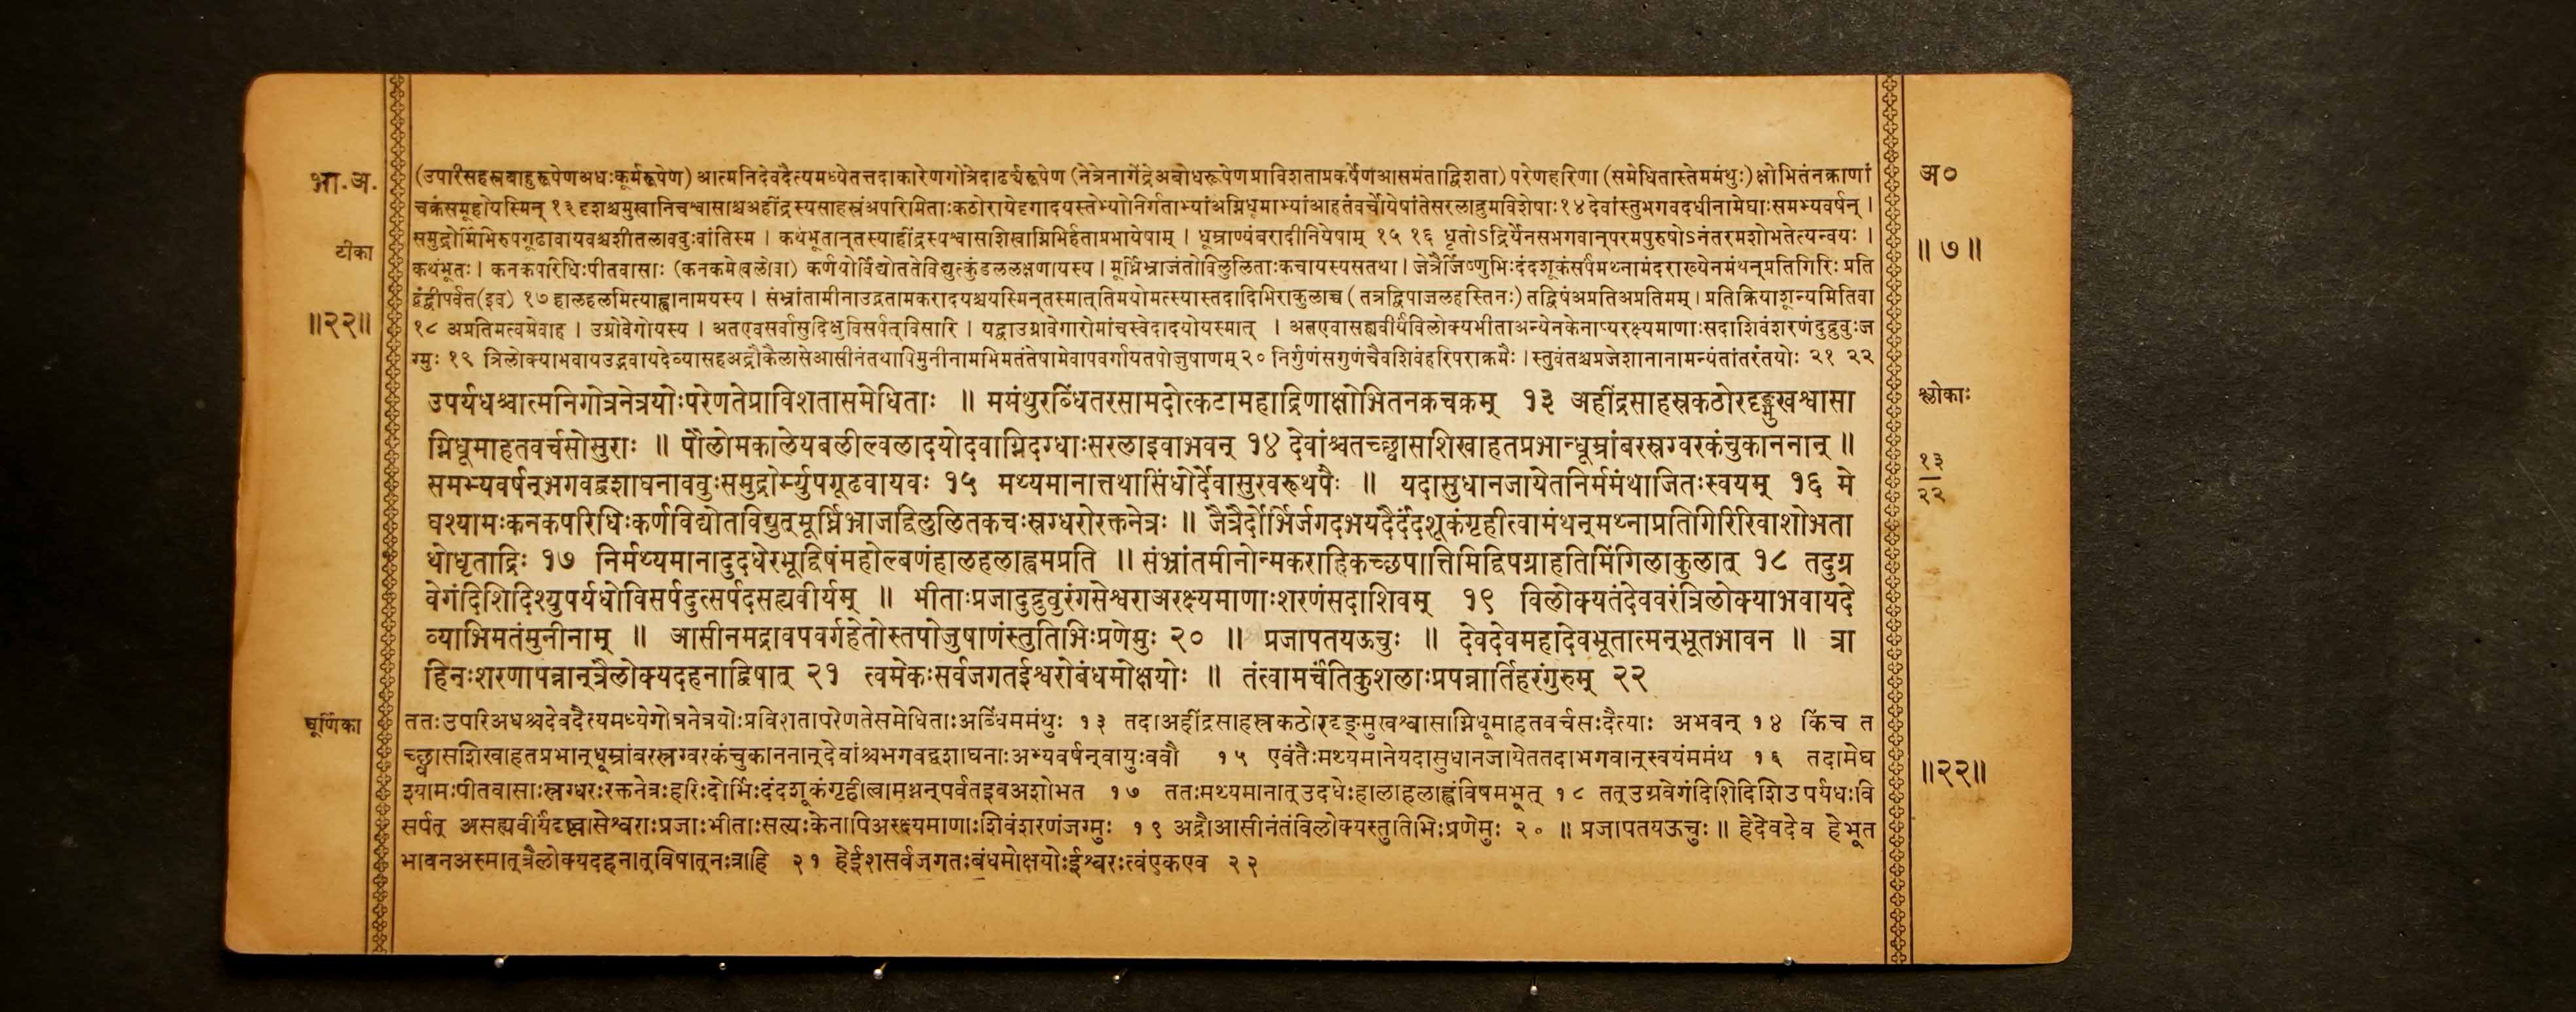 भा.अ.
(उपरिसहस्रबाहुरूपेणअधःकूर्मरूपेण) आत्मनिदेवदैत्यमध्येतत्तदाकारेणगोत्रेदाढर्यरूपेण (नेत्रेनागेंद्रेअबोधरूपेणप्राविशताप्रकर्षेणआसमंताद्विशता) परेणहरिणा (समेधितास्तेममंथुः) क्षोभितंनक्राणां
अ०
चक्रंसमूहोयस्मिन् १३ दृशश्चमुखानिचश्वासाश्चअहींद्रस्यसाहस्रंअपरिमिताःकठोरायेदृगादयस्तेभ्योनिर्गताभ्यांअग्निधूमाभ्यांआहतंवर्चोयेषांतेसरलाद्रुमविशेषाः १४ देवांस्तुभगवदधीनामेघाःसमभ्यवर्षन् ।
टीका
समुद्रोर्मिभिरुपगूढावायवश्चशीतलाववुःवांतिस्म । कथंभूतान्तस्याहींद्रस्यश्वासशिखाग्निभिर्हताप्रभायेषाम् । धूम्राण्यंबरादीनियेषाम् १५ १६ धृतोऽद्रिर्येनसभगवान्परमपुरुषोऽनंतरमशोभतेत्यन्वयः ।
॥ ७ ॥
कथंभूतः । कनकपरिधिःपीतवासाः (कनकमेखलोवा) कर्णयोर्विद्योततेविद्युत्कुंडललक्षणायस्य । मूर्ध्निभ्राजंतोविलुलिताःकचायस्यसतथा । जेत्रैर्जिष्णुभिःदंदशूकंसर्पंमथ्नामंदराख्येनमंथन्प्रतिगिरिः प्रति
द्वंद्वीपर्वत(इव) १७ हालहलमित्याह्वानामयस्य । संभ्रांतामीनाउद्गतामकरादयश्चयस्मिन्तस्मात्तिमयोमत्स्यास्तदादिभिराकुलाच्च (तत्रद्विपाजलहस्तिनः) तद्विषंअप्रतिअप्रतिमम् । प्रतिक्रियाशून्यमितिवा
॥२२॥
१८ अप्रतिमत्वमेवाह । उग्रोवेगोयस्य । अतएवसर्वासुदिक्षुविसर्पत्विसारि । यद्वाउग्रावेगारोमांचस्वेदादयोयस्मात् । अतएवासह्यवीर्यंविलोक्यभीताअन्येनकेनाप्यरक्ष्यमाणाःसदाशिवंशरणंदुद्रुवुःज
ग्मुः १९ त्रिलोक्याभवायउद्भवायदेव्यासहअद्रौकैलासेआसीनंतथापिमुनीनामभिमतंतेषामेवापवर्गायतपोजुषाणम् २० निर्गुणंसगुणंचैवशिवंहरिपराक्रमैः । स्तुवंतश्चप्रजेशानानामन्यंतांतरंतयोः २१ २२
उपर्यधश्चात्मनिगोत्रनेत्रयोःपरेणतेप्राविशतासमेधिताः ॥ ममंथुरब्धिंतरसामदोत्कटामहाद्रिणाक्षोभितनक्रचक्रम् १३ अहींद्रसाहस्रकठोरदृङ्मुखश्वासा
श्लोकाः
ग्निधूमाहतवर्चसोसुराः ॥ पौलोमकालेयबलील्वलादयोदवाग्निदग्धाःसरलाइवाभवन् १४ देवांश्चतच्छ्वासशिखाहतप्रभान्धूम्रांबरस्रग्वरकंचुकाननान् ॥
१३
२२
समभ्यवर्षन्भगवद्वशाघनाववुःसमुद्रोर्म्युपगूढवायवः १५ मथ्यमानात्तथासिंधोर्देवासुरवरूथपैः ॥ यदासुधानजायेतनिर्ममंथाजितःस्वयम् १६ मे
घश्यामःकनकपरिधिःकर्णविद्योतविद्युत्मूर्ध्निभ्राजद्विलुलितकचःस्रग्धरोरक्तनेत्रः ॥ जैत्रैर्दोर्भिर्जगदभयदैर्दंदशूकंगृहीत्वामंथन्मथ्नाप्रतिगिरिरिवाशोभता
थोधृताद्रिः १७ निर्मथ्यमानादुदधेरभूद्विषंमहोल्बणंहालहलाह्वमप्रति ॥ संभ्रांतमीनोन्मकराहिकच्छपात्तिमिद्विपग्राहतिमिंगिलाकुलात् १८ तदुग्र
वेगंदिशिदिश्युपर्यधोविसर्पदुत्सर्पदसह्यवीर्यम् ॥ भीताःप्रजादुद्रुवुरंगसेश्वराअरक्ष्यमाणाःशरणंसदाशिवम् १९ विलोक्यतंदेववरंत्रिलोक्याभवायदे
व्याभिमतंमुनीनाम् ॥ आसीनमद्रावपवर्गहेतोस्तपोजुषाणंस्तुतिभिःप्रणेमुः २० ॥ प्रजापतयऊचुः ॥ देवदेवमहादेवभूतात्मन्भूतभावन ॥ त्रा
हिनःशरणापन्नान्त्रैलोक्यदहनाद्विषात् २१ त्वमेकःसर्वजगतईश्वरोबंधमोक्षयोः ॥ तंत्वामर्चंतिकुशलाःप्रपन्नार्तिहरंगुरुम् २२
चूर्णिका
ततःउपरिअधश्चदेवदैत्यमध्येगोत्रनेत्रयोःप्रविशतापरेणतेसमेधिताःअब्धिंममंथुः १३ तदाअहींद्रसाहस्रकठोरदृङ्मुखश्वासाग्निधूमाहतवर्चसःदैत्याः अभवन् १४ किंच त
च्छ्वासशिखाहतप्रभान्धूम्रांबरस्रग्वरकंचुकाननान्देवांश्चभगवद्वशाघनाःअभ्यवर्षन्वायुःववौ १५ एवंतैःमथ्यमानेयदासुधानजायेततदाभगवान्स्वयंममंथ १६ तदामेघ
॥२२॥
श्यामःपीतवासाःस्रग्धरःरक्तनेत्रःहरिःदोर्भिःदंदशूकंगृहीत्वामथ्नन्पर्वतइवअशोभत १७ ततःमथ्यमानात्उदधेःहालाहलाह्वंविषमभूत् १८ तत्उग्रवेगंदिशिदिशिउपर्यधःवि
सर्पत् असह्यवीर्यंदृष्ट्वासेश्वराःप्रजाःभीताःसत्यःकेनापिअरक्ष्यमाणाःशिवंशरणंजग्मुः १९ अद्रौआसीनंतंविलोक्यस्तुतिभिःप्रणेमुः २० ॥ प्रजापतयऊचुः ॥ हेदेवदेव हेभूत
भावनअस्मात्त्रैलोक्यदहनात्विषात्नःत्राहि २१ हेईशसर्वजगतःबंधमोक्षयोःईश्वरःत्वंएकएव २२